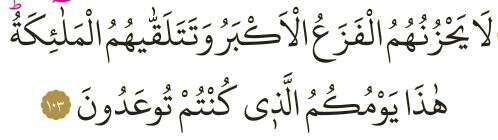 لَا يَحْزُنُهُمُ الْفَزَعُ الْاَكْبَرُ وَتَتَلَقّٰيهُمُ الْمَلٰٓئِكَةُؕ
هٰذَا يَوْمُكُمُ الَّذ۪ي كُنْتُمْ تُوعَدُونَ ١٠٣